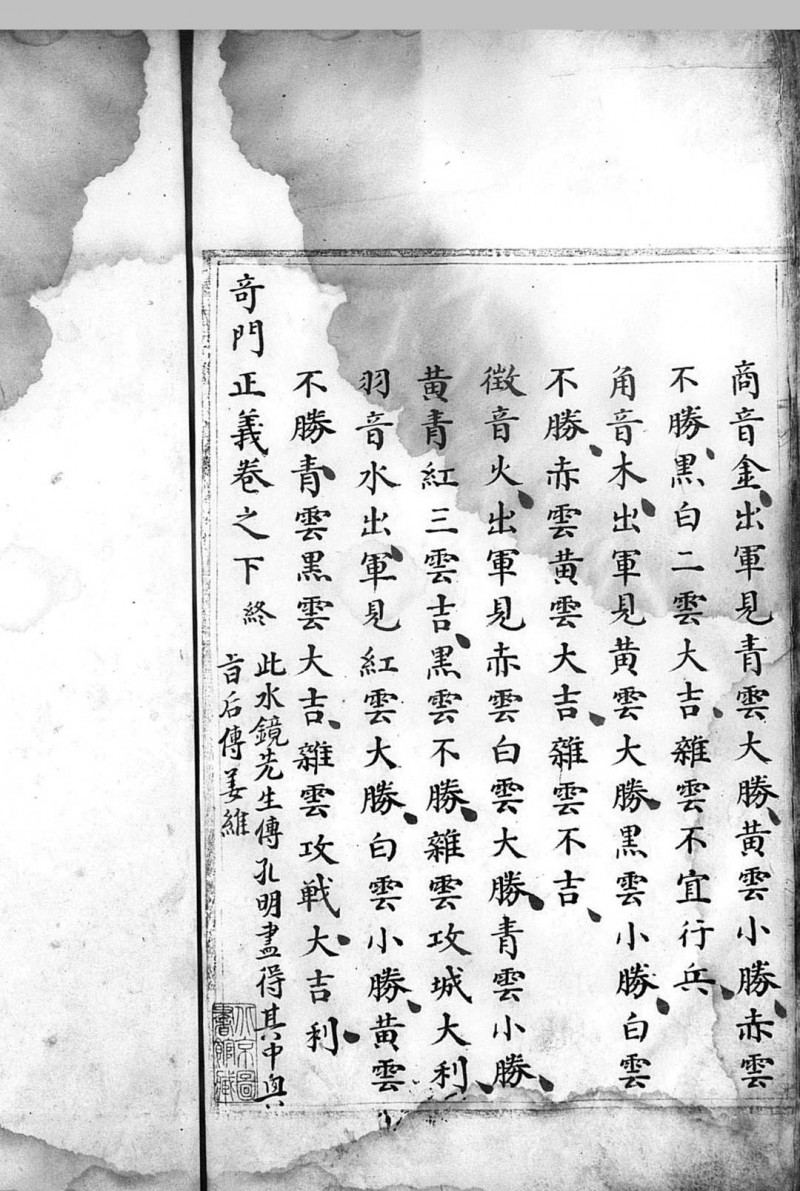 商音金出軍見青雲大勝黃雲小勝赤雲
不勝黑白二雲大吉雜雲不宜行兵
角音木出軍見黃雲大勝黑雲小勝白雲
不勝赤雲黃雲大吉雜雲不吉
徵音火出軍見赤雲白雲大勝青雲小勝
黃青紅三雲吉黑雲不勝雜雲攻城大利
羽音水出軍見紅雲大勝白雲小勝黃雲
不勝青雲黑雲大吉雜雲攻戰大吉利
奇門正義卷之下終
此水鏡先生傳孔明盡得其中
旨后傳姜維
北京圖書館藏